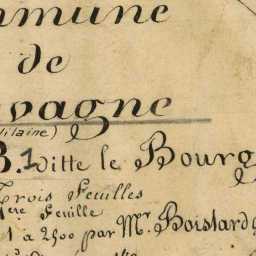 mmune
de
vagne
Vilaine)
B.1 ditte le Bourg
Trois Feuilles
1ère Feuille
1 a 2500 par Mr. Boistard